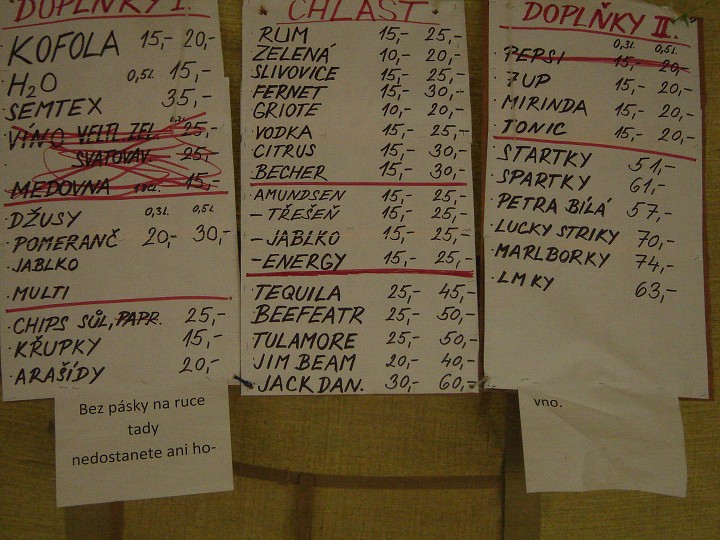 DOPLŇKY I.
KOFOLA 15,- 20,-
H2O 0,5l. 15,-
SEMTEX 35,-
VÍNO VELTL. ZEL. 0,2l. 25,-
SVATOVAV. 25,-
MEDOVNA 15,-
DŽUSY 0,3l. 0,5l.
POMERANČ 20,- 30,-
JABLKO
MULTI
CHIPS SŮL, PAPR. 25,-
KŘUPKY 15,-
ARAŠÍDY 20,-
Bez pásky na ruce
tady
nedostanete ani ho-
CHLAST
RUM 15,- 25,-
ZELENÁ 10,- 20,-
SLIVOVICE 15,- 25,-
FERNET 15,- 30,-
GRIOTE 10,- 20,-
VODKA 15,- 25,-
CITRUS 15,- 30,-
BECHER 15,- 30,-
AMUNDSEN 15,- 25,-
- TŘEŠEŇ 15,- 25,-
- JABLKO 15,- 25,-
- ENERGY 15,- 25,-
TEQUILA 25,- 45,-
BEEFEATR 25,- 50,-
TULAMORE 25,- 50,-
JIM BEAM 20,- 40,-
JACK DAN. 30,- 60,-
DOPLŇKY II.
0,3l. 0,5l.
PEPSI 15,- 20,-
7UP 15,- 20,-
MIRINDA 15,- 20,-
TONIC 15,- 20,-
STARTKY 51,-
SPARTKY 61,-
PETRA BÍLÁ 57,-
LUCKY STRIKY 70,-
MARLBORKY 74,-
LMKY 63,-
vno.